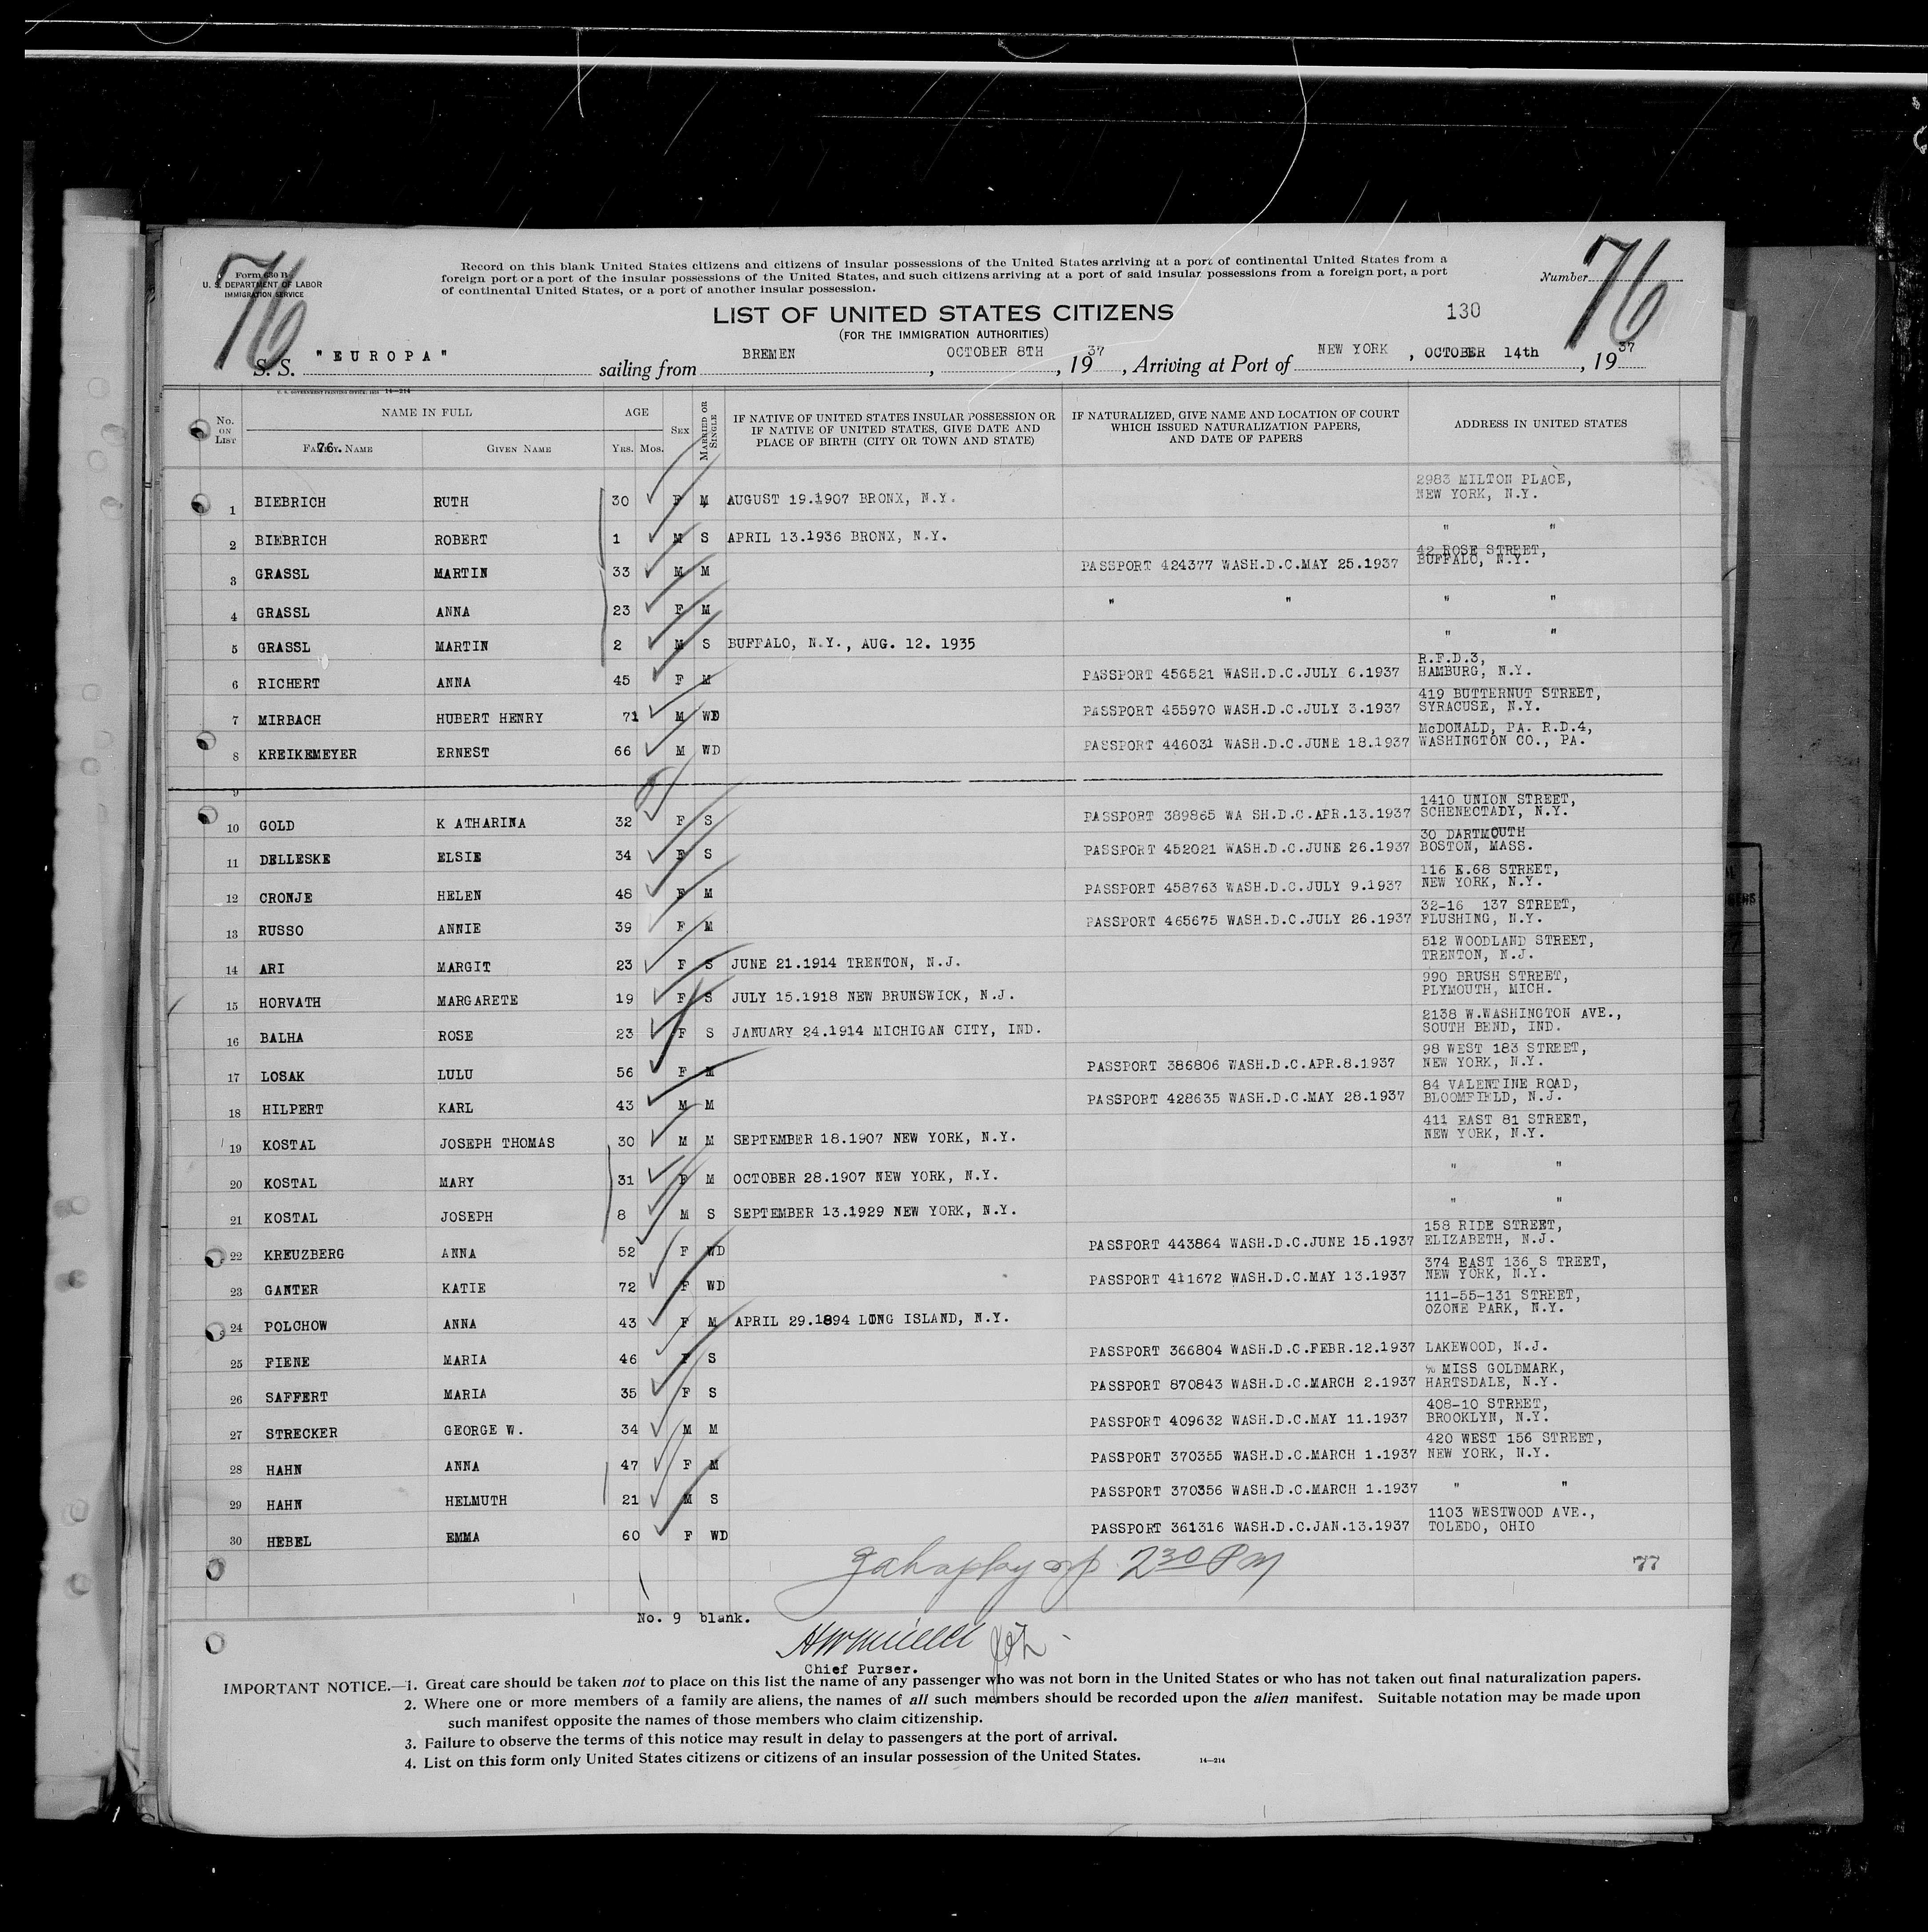 76
Form 630 B
U. S. DEPARTMENT OF LABOR
IMMIGRATION SERVICE
Record on this blank United States citizens and citizens of insular possessions of the United States arriving at a port of continental United States from a
foreign port or a port of the insular possessions of the United States, and such citizens arriving at a port of said insular possessions from a foreign port, a port
of continental United States, or a port of another insular possession.
Number 76
LIST OF UNITED STATES CITIZENS
130
(FOR THE IMMIGRATION AUTHORITIES)
S. S. "EUROPA" sailing from BREMEN, OCTOBER 8TH, 1937, Arriving at Port of NEW YORK, OCTOBER 14th, 1937
U. S. GOVERNMENT PRINTING OFFICE 14—214
No. ON LIST
NAME IN FULL
FAMILY NAME
76.
GIVEN NAME
AGE
YRS. MOS.
SEX
MARRIED OR SINGLE
IF NATIVE OF UNITED STATES INSULAR POSSESSION OR
IF NATIVE OF UNITED STATES, GIVE DATE AND
PLACE OF BIRTH (CITY OR TOWN AND STATE)
IF NATURALIZED, GIVE NAME AND LOCATION OF COURT
WHICH ISSUED NATURALIZATION PAPERS,
AND DATE OF PAPERS
ADDRESS IN UNITED STATES
1 BIEBRICH RUTH 30 F M AUGUST 19.1907 BRONX, N.Y. 2983 MILTON PLACE,
NEW YORK, N.Y.
2 BIEBRICH ROBERT 1 M S APRIL 13.1936 BRONX, N.Y. " "
3 GRASSL MARTIN 33 M M PASSPORT 424377 WASH.D.C.MAY 25.1937 42 ROSE STREET,
BUFFALO, N.Y.
4 GRASSL ANNA 23 F M " " " "
5 GRASSL MARTIN 2 M S BUFFALO, N.Y., AUG. 12. 1935 " "
6 RICHERT ANNA 45 F M PASSPORT 456521 WASH.D.C.JULY 6.1937 R.F.D.3,
HAMBURG, N.Y.
7 MIRBACH HUBERT HENRY 71 M WD PASSPORT 455970 WASH.D.C.JULY 3.1937 419 BUTTERNUT STREET,
SYRACUSE, N.Y.
8 KREIKEMEYER ERNEST 66 M WD PASSPORT 446031 WASH.D.C.JUNE 18.1937 McDONALD, PA. R.D.4,
WASHINGTON CO., PA.
9
10 GOLD K ATHARINA 32 F S PASSPORT 389865 WA SH.D.C.APR.13.1937 1410 UNION STREET,
SCHENECTADY, N.Y.
11 DELLESKE ELSIE 34 F S PASSPORT 452021 WASH.D.C.JUNE 26.1937 30 DARTMOUTH
BOSTON, MASS.
12 CRONJE HELEN 48 F M PASSPORT 458763 WASH.D.C.JULY 9.1937 116 E.68 STREET,
NEW YORK, N.Y.
13 RUSSO ANNIE 39 F M PASSPORT 465675 WASH.D.C.JULY 26.1937 32-16 137 STREET,
FLUSHING, N.Y.
14 ARI MARGIT 23 F S JUNE 21.1914 TRENTON, N.J. 512 WOODLAND STREET,
TRENTON, N.J.
15 HORVATH MARGARETE 19 F S JULY 15.1918 NEW BRUNSWICK, N.J. 990 BRUSH STREET,
PLYMOUTH, MICH.
16 BALHA ROSE 23 F S JANUARY 24.1914 MICHIGAN CITY, IND. 2138 W.WASHINGTON AVE.,
SOUTH BEND, IND.
17 LOSAK LULU 56 F M PASSPORT 386806 WASH.D.C.APR.8.1937 98 WEST 183 STREET,
NEW YORK, N.Y.
18 HILPERT KARL 43 M M PASSPORT 428635 WASH.D.C.MAY 28.1937 84 VALENTINE ROAD,
BLOOMFIELD, N.J.
19 KOSTAL JOSEPH THOMAS 30 M M SEPTEMBER 18.1907 NEW YORK, N.Y. 411 EAST 81 STREET,
NEW YORK, N.Y.
20 KOSTAL MARY 31 F M OCTOBER 28.1907 NEW YORK, N.Y. " "
21 KOSTAL JOSEPH 8 M S SEPTEMBER 13.1929 NEW YORK, N.Y. " "
22 KREUZBERG ANNA 52 F WD PASSPORT 443864 WASH.D.C.JUNE 15.1937 158 RIDE STREET,
ELIZABETH, N.J.
23 GANTER KATIE 72 F WD PASSPORT 411672 WASH.D.C.MAY 13.1937 374 EAST 136 S TREET,
NEW YORK, N.Y.
24 POLCHOW ANNA 43 F M APRIL 29.1894 LONG ISLAND, N.Y. 111-55-131 STREET,
OZONE PARK, N.Y.
25 FIENE MARIA 46 F S PASSPORT 366804 WASH.D.C.FEBR.12.1937 LAKEWOOD, N.J.
26 SAFFERT MARIA 35 F S PASSPORT 870843 WASH.D.C.MARCH 2.1937 % MISS GOLDMARK,
HARTSDALE, N.Y.
27 STRECKER GEORGE W. 34 M M PASSPORT 409632 WASH.D.C.MAY 11.1937 408-10 STREET,
BROOKLYN, N.Y.
28 HAHN ANNA 47 F M PASSPORT 370355 WASH.D.C.MARCH 1.1937 420 WEST 156 STREET,
NEW YORK, N.Y.
29 HAHN HELMUTH 21 M S PASSPORT 370356 WASH.D.C.MARCH 1.1937 " "
30 HEBEL EMMA 60 F WD PASSPORT 361316 WASH.D.C.JAN.13.1937 1103 WESTWOOD AVE.,
TOLEDO, OHIO
2 30 PM
77
No. 9 blank.
Chief Purser.
IMPORTANT NOTICE.—1. Great care should be taken not to place on this list the name of any passenger who was not born in the United States or who has not taken out final naturalization papers.
2. Where one or more members of a family are aliens, the names of all such members should be recorded upon the alien manifest. Suitable notation may be made upon
such manifest opposite the names of those members who claim citizenship.
3. Failure to observe the terms of this notice may result in delay to passengers at the port of arrival.
4. List on this form only United States citizens or citizens of an insular possession of the United States.
14—214